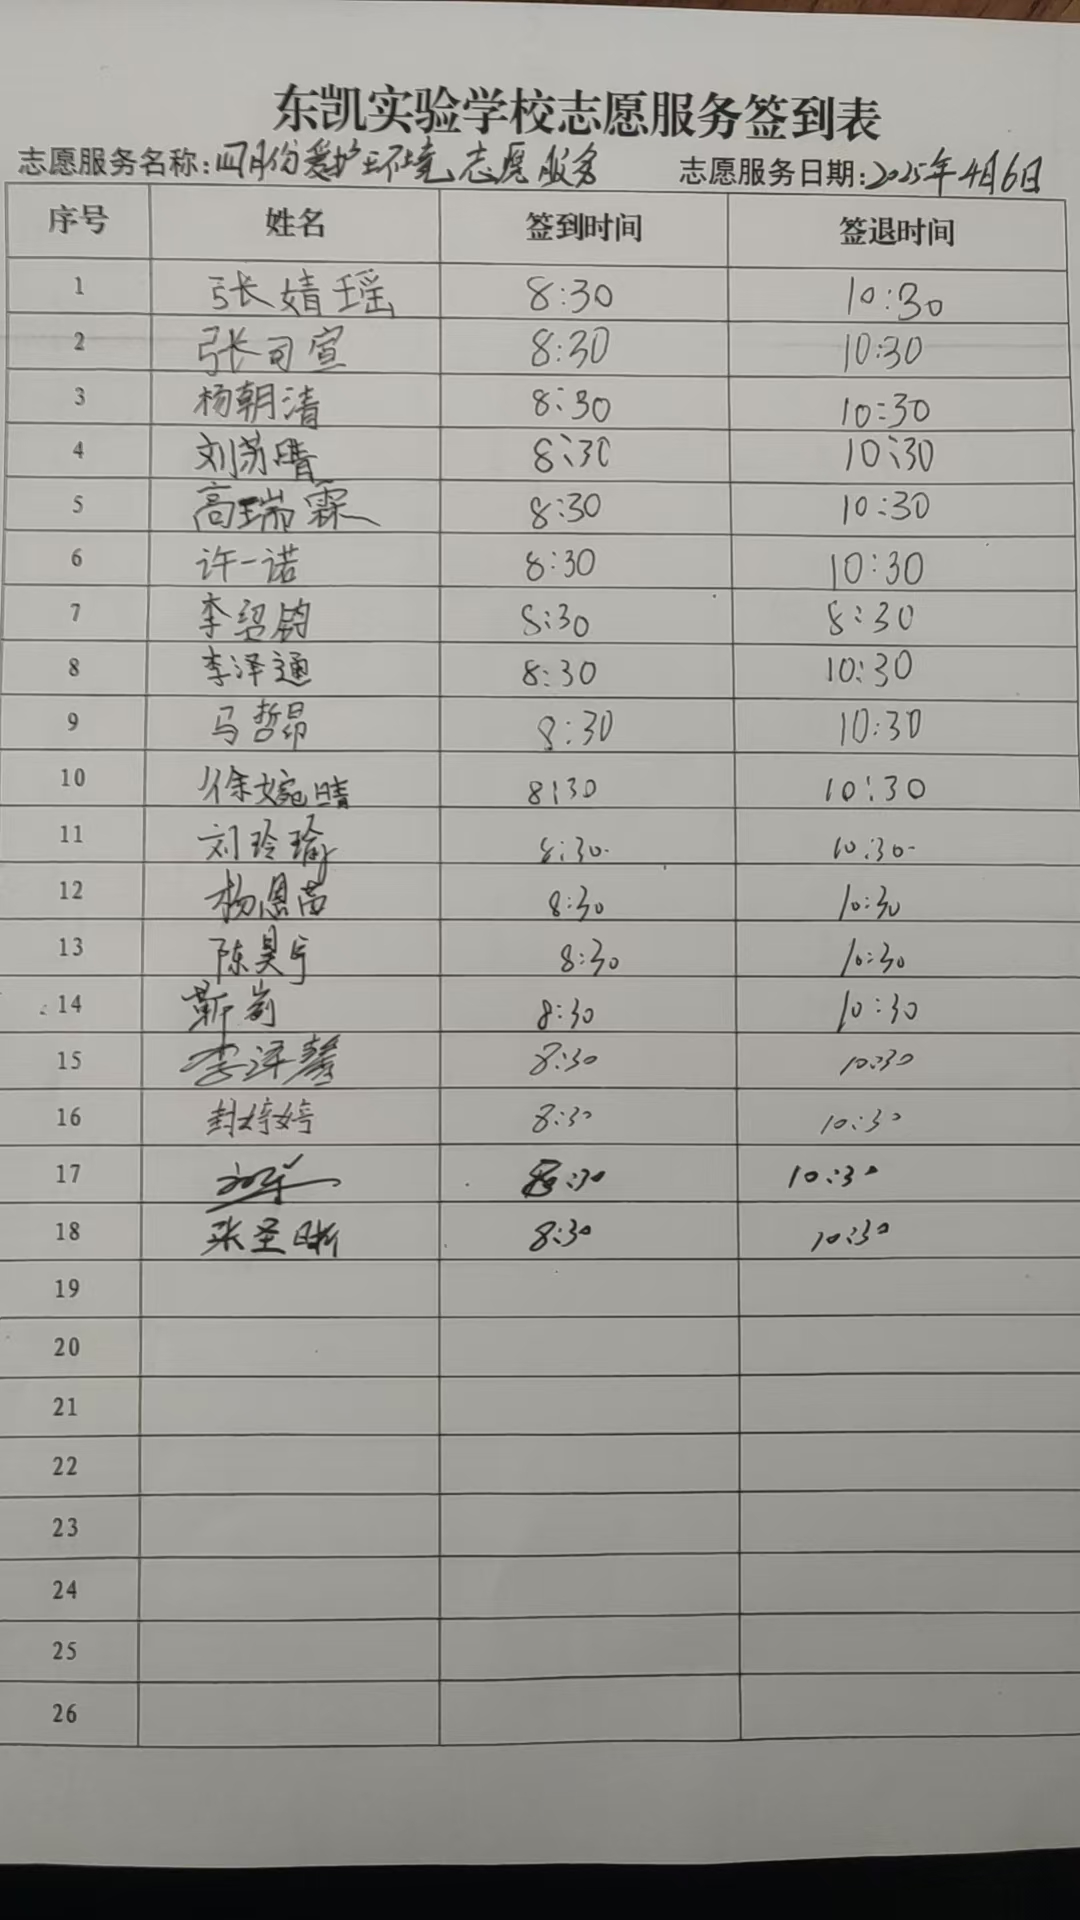 东凯实验学校志愿服务签到表
志愿服务名称:四月份爱护环境志愿服务 志愿服务日期:2025年4月6日
序号 姓名 签到时间 签退时间
1 张婧瑶 8:30 10:30
2 张司宣 8:30 10:30
3 杨朝清 8:30 10:30
4 刘苏晴 8:30 10:30
5 高瑞霖 8:30 10:30
6 许一诺 8:30 10:30
7 李绍钧 8:30 8:30
8 李泽通 8:30 10:30
9 马哲昂 8:30 10:30
10 徐婉晴 8:30 10:30
11 刘玲瑜 8:30 10:30
12 杨恩苗 8:30 10:30
13 陈昊宇 8:30 10:30
14 靳 8:30 10:30
15 李泽馨 8:30 10:30
16 封婷婷 8:30 10:30
17 8:30 10:30
18 张圣晰 8:30 10:30
19
20
21
22
23
24
25
26